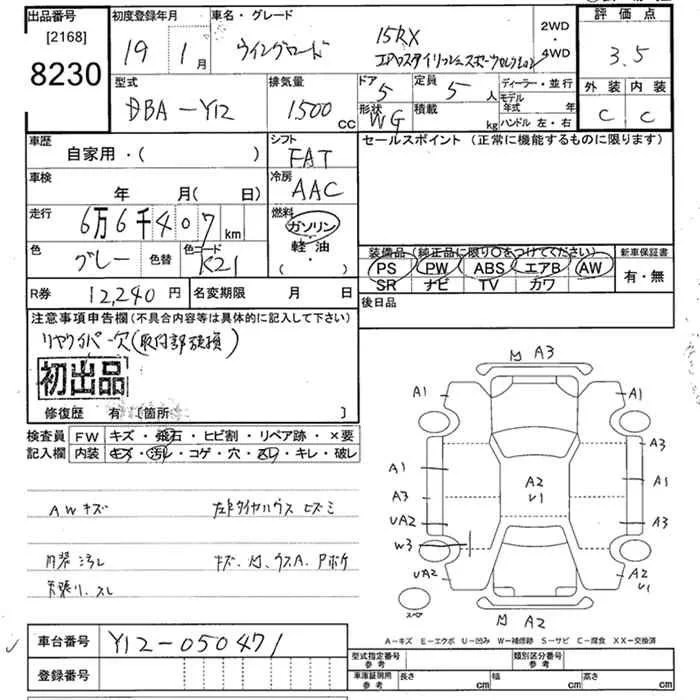 出品番号
[2168]
8230
初度登録年月
19年 1月
車名・グレード
ウイングロード
15RX
エアロスタイリッシュスポーツセレクション
2WD
・
4WD
評価点
3.5
外装 内装
C C
型式
DBA-Y12
排気量
1500 CC
ドア 5
定員 5人
形状 WG
積載 kg
ディーラー・並行
モデル年式 年
ハンドル 左・右
車歴
自家用・( )
シフト
FAT
セールスポイント(正常に機能するものに限ります)
車検
年 月( 日)
冷房
AAC
走行
6万6千407km
燃料
ガソリン
軽油
( ・ )
色
グレー
色替
色コード
K21
装備品(純正品に限り○をつけてください)
PS PW ABS エアB AW
SR ナビ TV カワ
新車保証書
有・無
R券 12,240円
名変期限 月 日
後日品
注意事項申告欄(不具合内容等は具体的に記入して下さい)
リヤワイパー欠(取付部破損)
初出品
修復歴 有 [箇所 ]
検査員
記入欄
FW キズ・飛石・ヒビ割・リペア跡・×要
内装 キズ・汚レ・コゲ・穴・スレ・キレ・破レ
AWキズ
内装汚レ
天張り、スレ
M A3
A1 A1
A3
A1 A1
A2
U1
A3 A3
UA2
W3
UA2 A2
U1
スペア
M A2
A-キズ E-エクボ U-凹み W-補修跡 S-サビ C-腐食 XX-交換済
車台番号
Y12-050471
登録番号
型式指定番号
参考
類別区分番号
参考
車庫証明用
参考
長さ cm 幅 cm 高さ cm